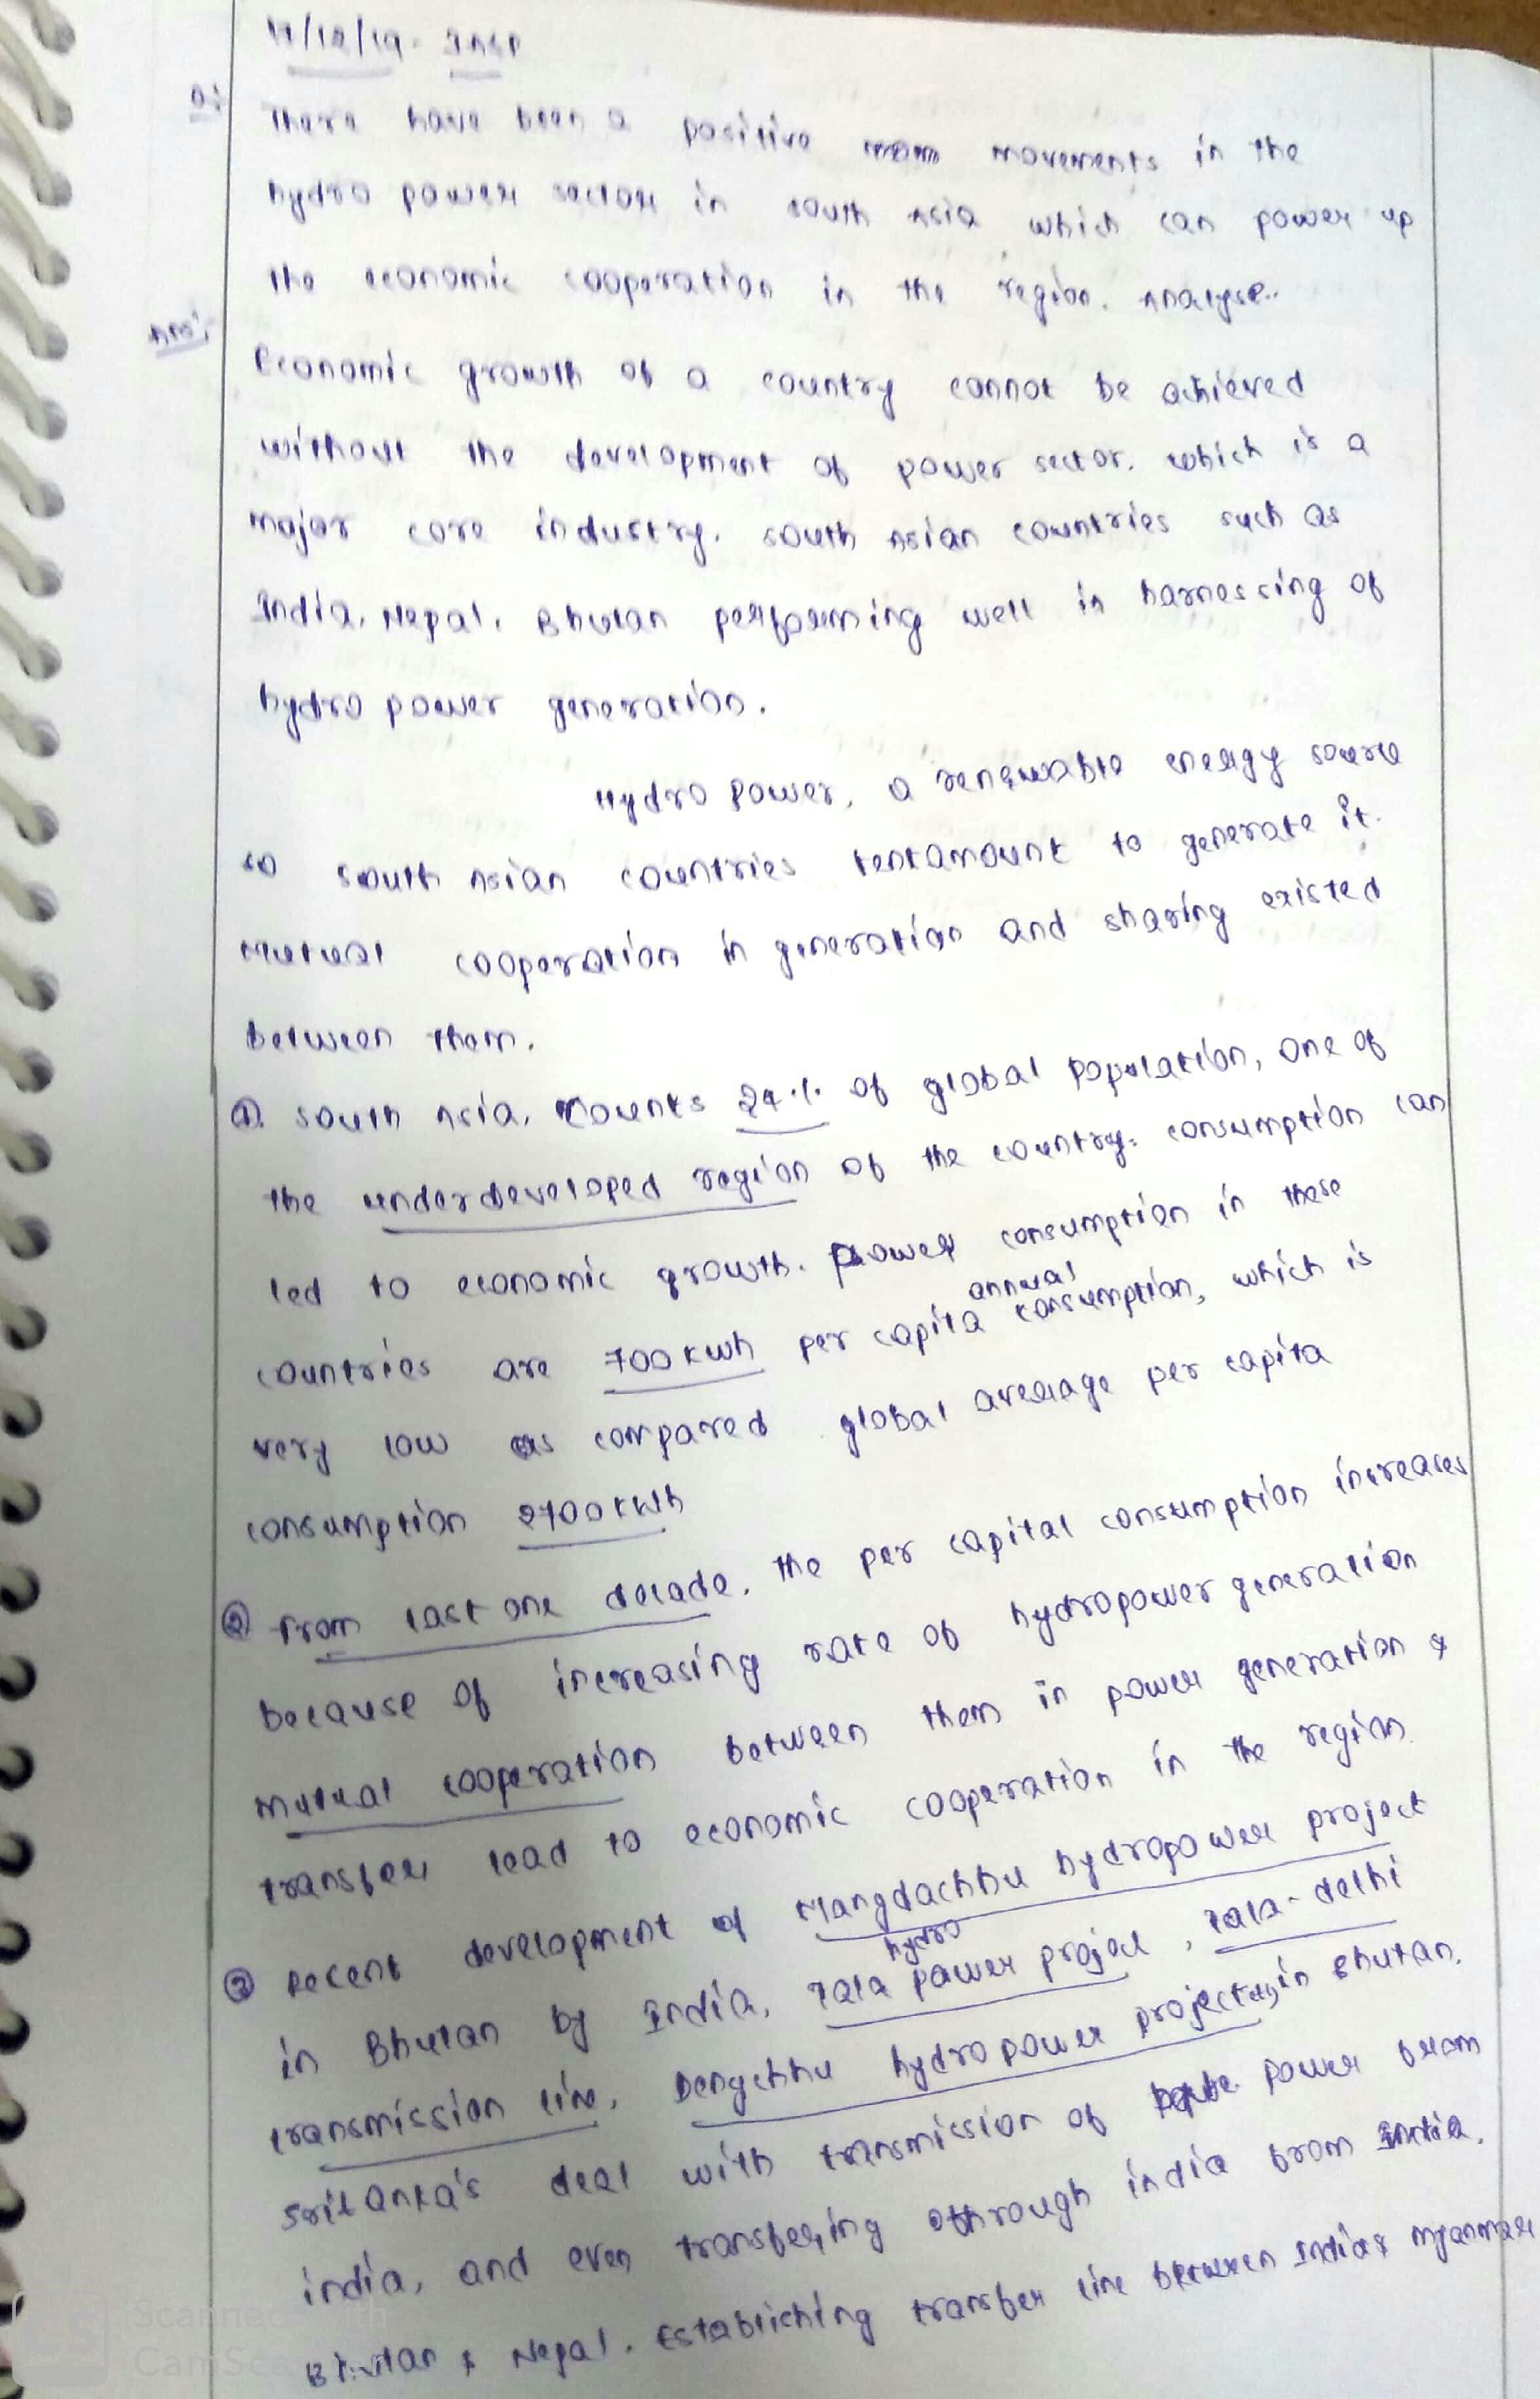 11/12/19. INSP
Q:
There have been a positive movements in the
hydro power sector in south Asia which can power up
the economic cooperation in the region. Analyse..
Ans:
Economic growth of a country cannot be achieved
without the development of power sector. which is a
major core industry. south Asian countries such as
India, Nepal, Bhutan performing well in harnessing of
hydro power generation.
Hydro power, a renewable energy source
so south Asian countries tentamount to generate it.
Mutual cooperation in generation and sharing existed
between them.
① South Asia, counts 24% of global population, one of
the underdeveloped region of the country. consumption can
led to economic growth. power consumption in these
countries are 700 kwh per capita annual consumption, which is
very low as compared global average per capita
consumption 2700 kWh
② From last one decade, the per capital consumption increases
because of increasing rate of hydropower generation
mutual cooperation between them in power generation &
transfer lead to economic cooperation in the region.
③ Recent development of Mangdachhu hydropower project
in Bhutan by India, Tala hydro power project, Tala-delhi
transmission line, hydropower project in Bhutan.
Srilanka's deal with transmission of power from
india, and even transfering through india from India.
Bhutan & Nepal. Establishing transfer line between India & Myanmar
Scanned with
CamScanner